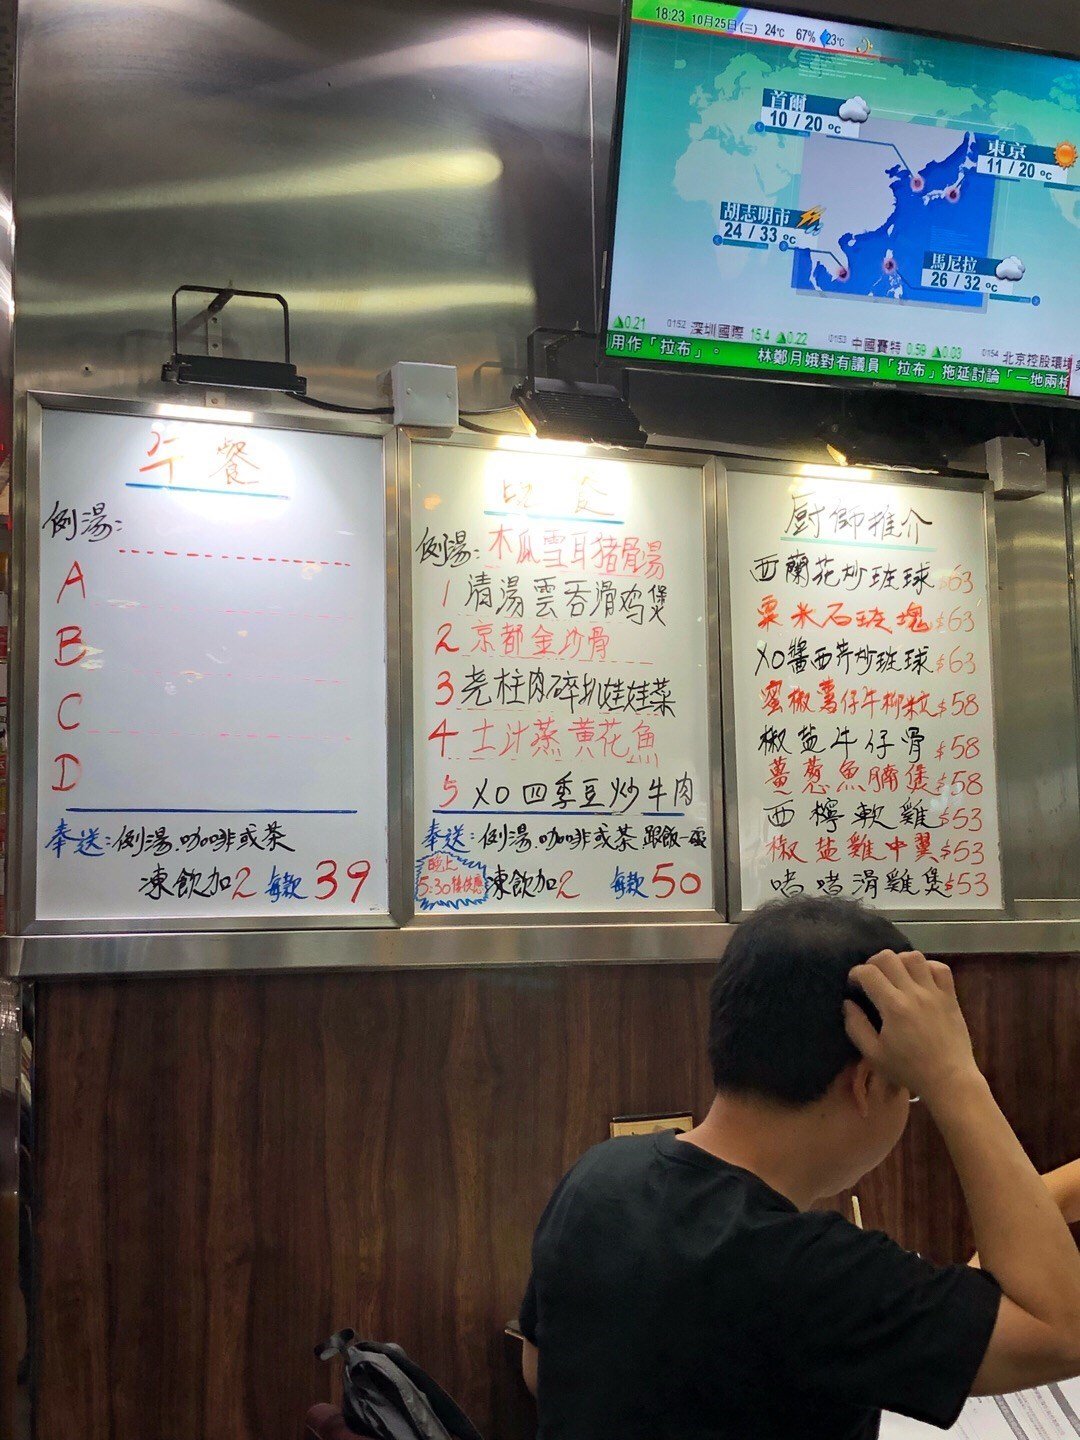 18:23 10月25日(三) 24℃ 67% 23℃
首爾
10 / 20 ºC
東京
11 / 20 ºC
胡志明市
24 / 33 ºC
馬尼拉
26 / 32 ºC
▲0.21 0152 深圳國際 15.4 ▲0.22 0153 中國賽特 0.59 ▲0.03 0154 北京控股環境
用作「拉布」。 林鄭月娥對有議員「拉布」拖延討論「一地兩檢
午餐
例湯:
A
B
C
D
奉送:例湯.咖啡或茶
凍飲加2 每款39
晚餐
例湯:木瓜雪耳猪骨湯
1 清湯雲吞滑鸡煲
2 京都金沙骨
3 尧柱肉碎扒娃娃菜
4 土汁蒸黄花魚
5 XO四季豆炒牛肉
奉送:例湯.咖啡或茶跟飯一碗
晚上
5:30
凍飲加2 每款50
厨師推介
西蘭花炒班球 $63
粟米石班塊 $63
XO醬西芹炒班球 $63
蜜椒薯仔牛柳粒 $58
椒盐牛仔骨 $58
薑葱魚腩煲 $58
西檸軟雞 $53
椒盐雞中翼 $53
啫啫滑雞煲 $53